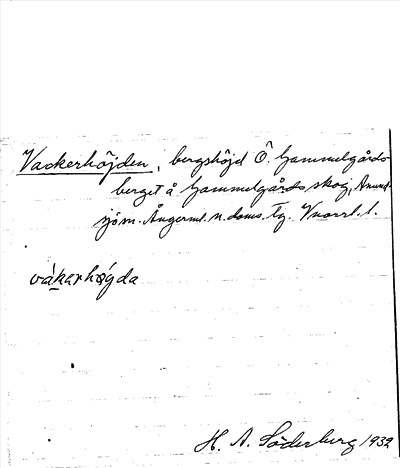 Vackerhöjden, bergshöjd Ö. Gammelgårds-
berget å Gammelgårds skog, Anund-
sjö sn. Ångerml. n. doms. Tg. Vnorrl. l.
våkarhøgda
H. A. Söderberg 1932